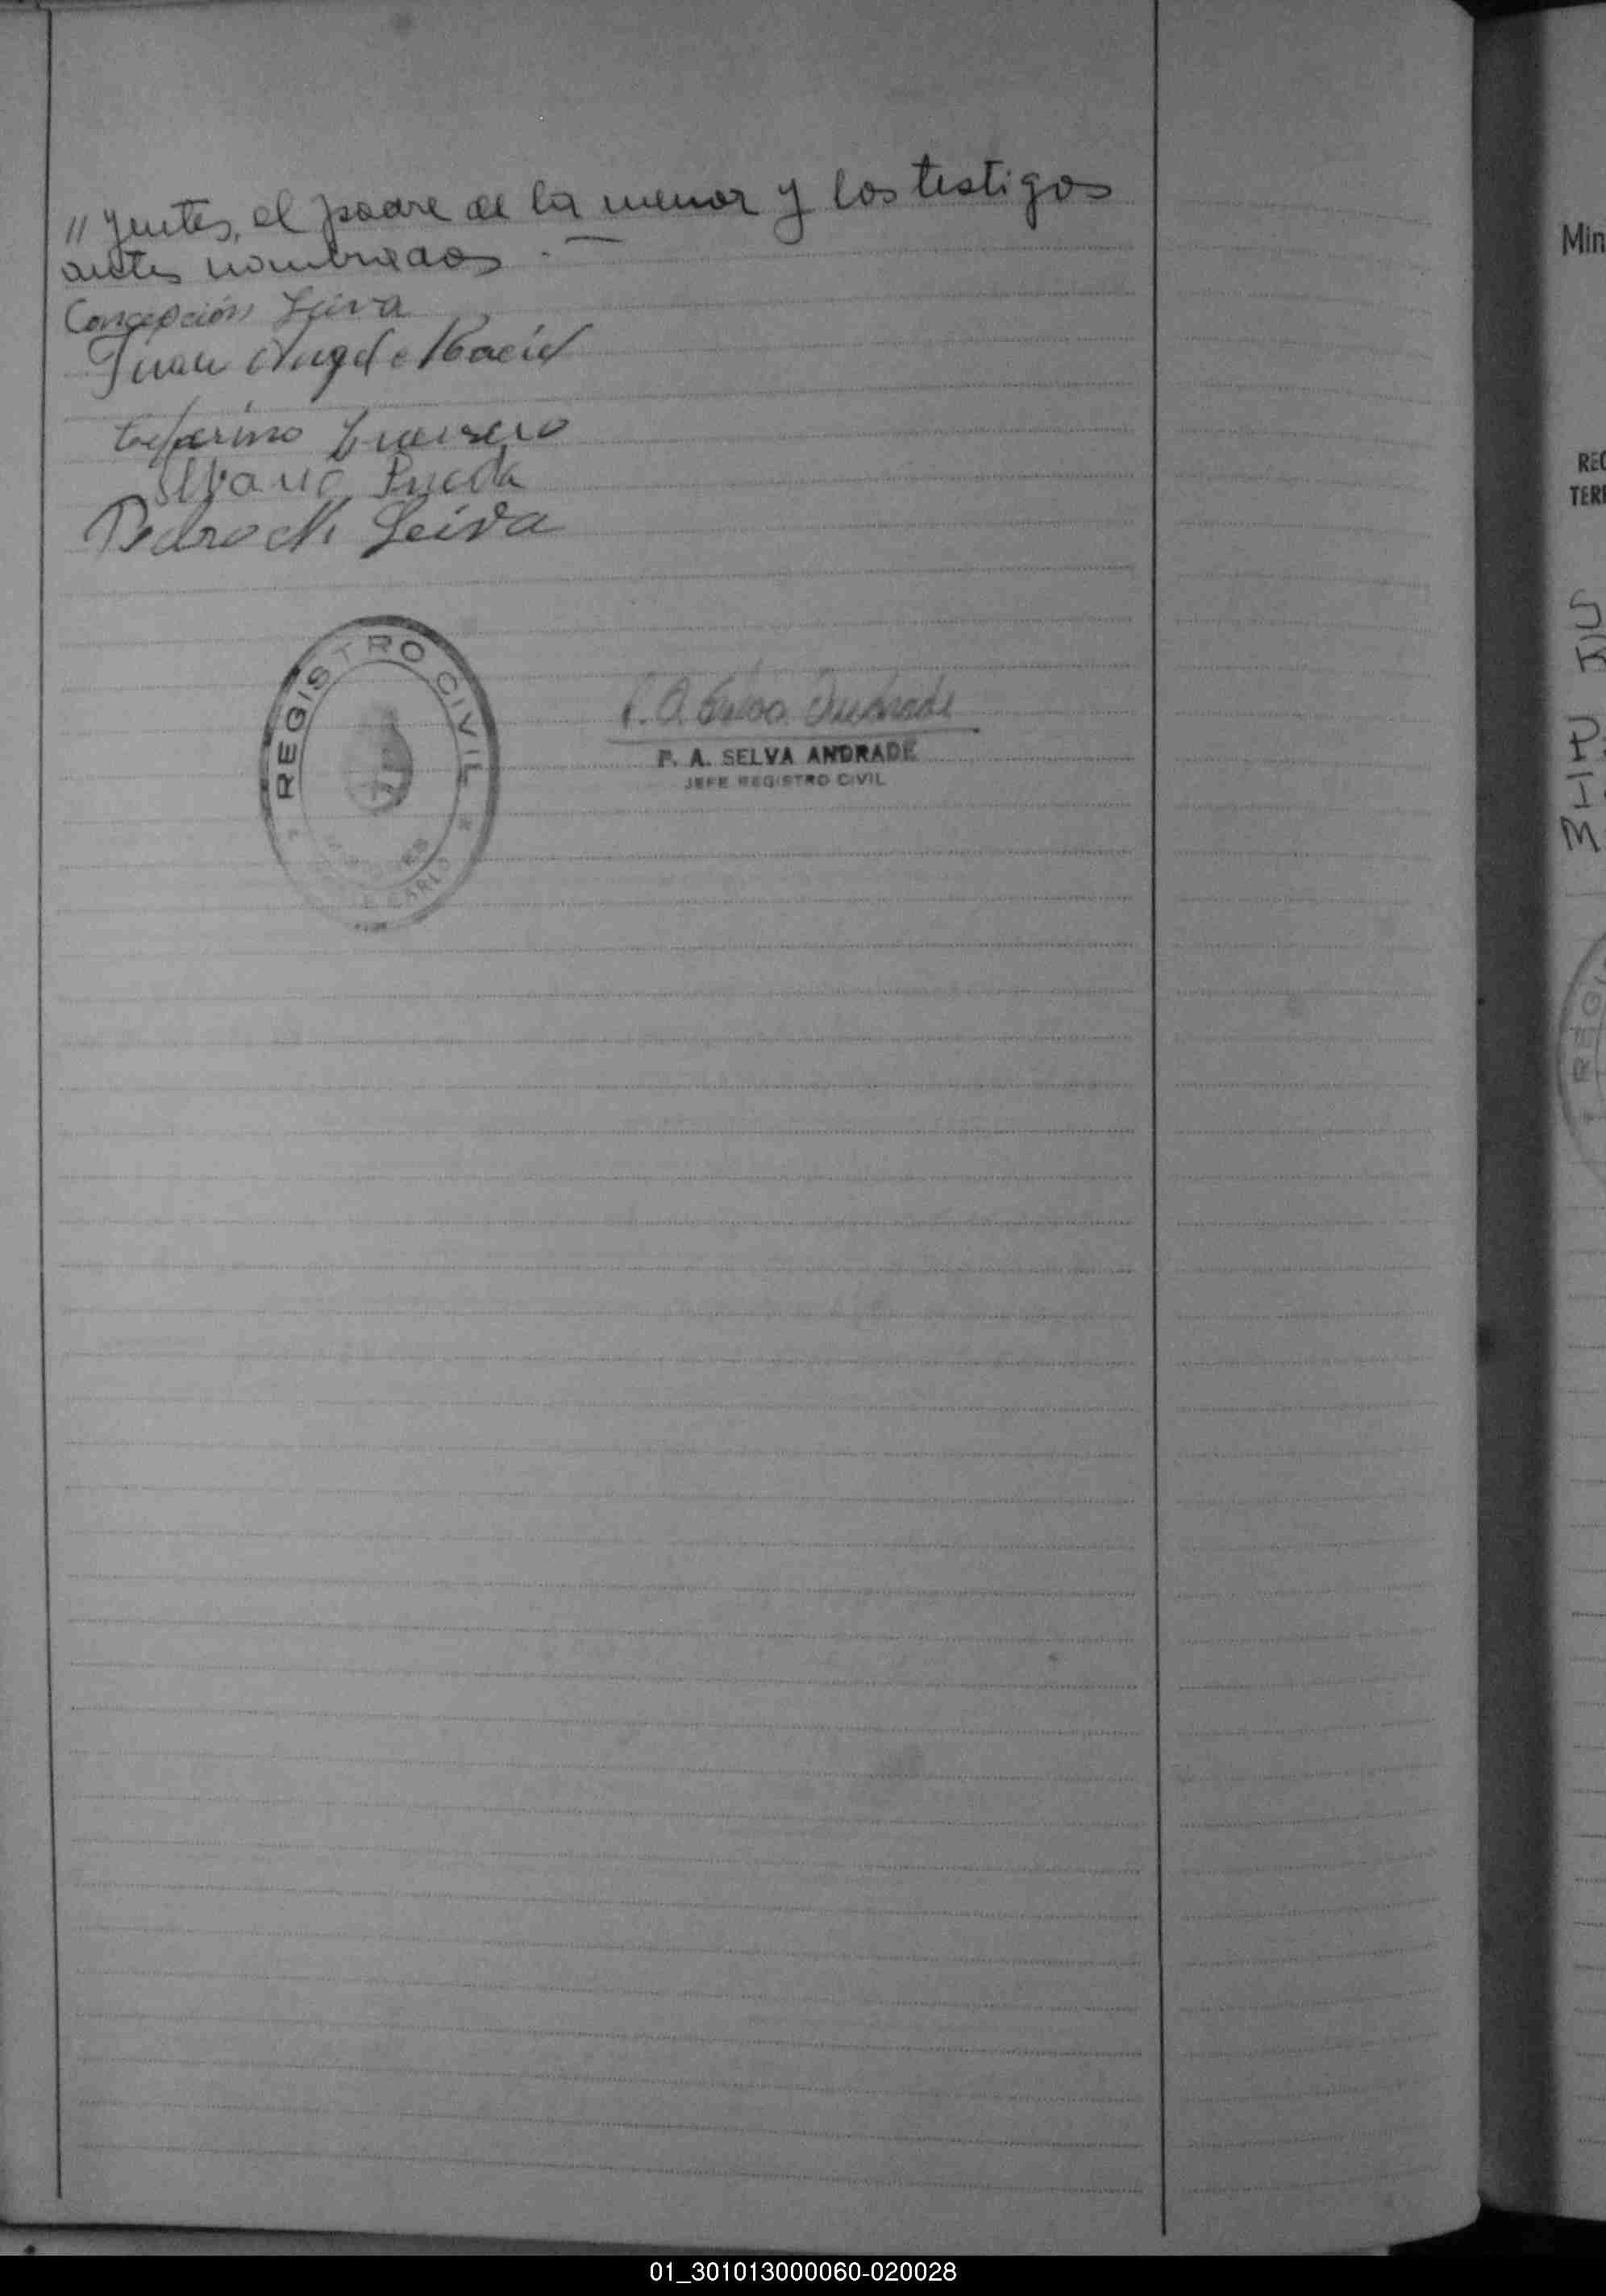 "yentes, el padre de la menor y los testigos
antes nombrados . —
Concepción Leiva
Juan Angel
Ceferino
Pedro M Leiva
REGISTRO CIVIL
P. A. Selva Andrade
P. A. SELVA ANDRADE
JEFE REGISTRO CIVIL
Min
REG
TERR
REGI
01_301013000060-020028